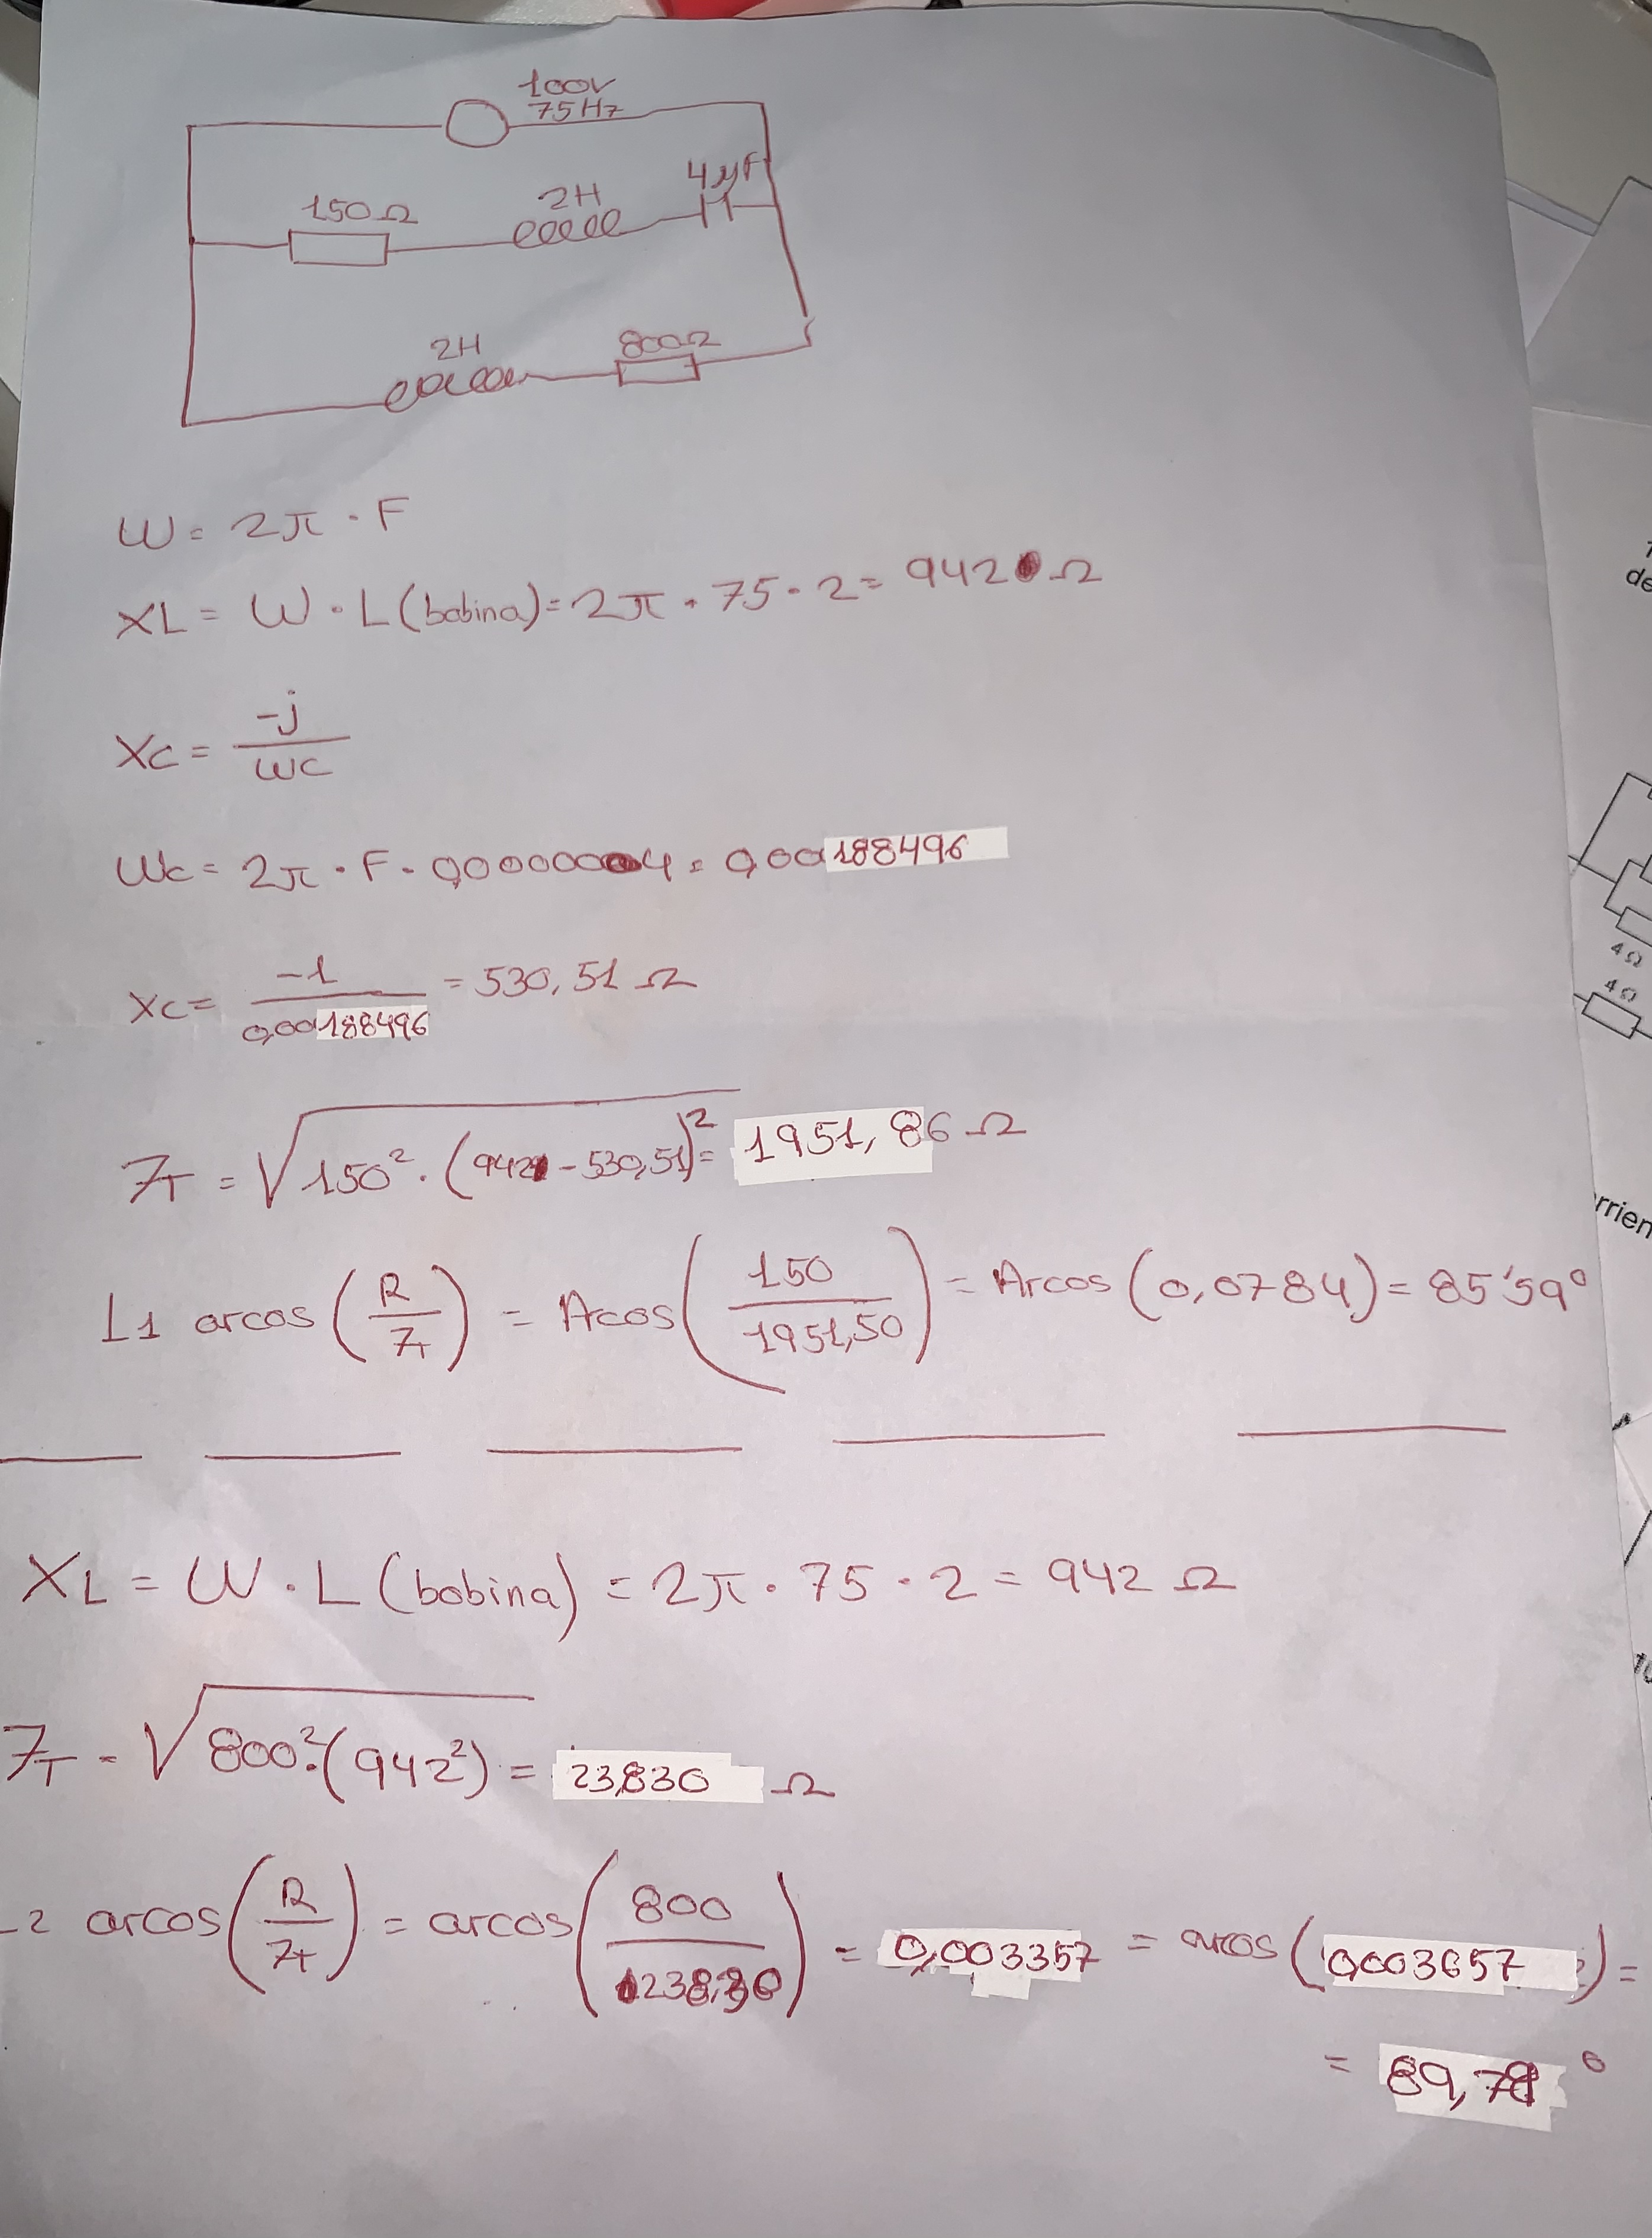 100V
75Hz
150Ω
2H
4μF
2H
800Ω
W = 2π · F
XL = W · L (bobina) = 2π · 75 · 2 = 942 Ω
Xc = -j / WC
Wc = 2π · F · = 0,00188496
Xc = -1 / 0,00188496 = 530,51 Ω
ZT = √150² · (942 - 530,51)² = 1951,86 Ω
L1 arcos (R / ZT) = Acos (150 / 1951,50) = Arcos (0,0784) = 85'59°
XL = W · L (bobina) = 2π · 75 · 2 = 942 Ω
ZT = √800² · (942²) = 23,830 Ω
2 arcos (R / ZT) = arcos (800 / ) = 0,003357 = arcos (0,003657) =
= 89,78°
4Ω
4Ω
de
rrien